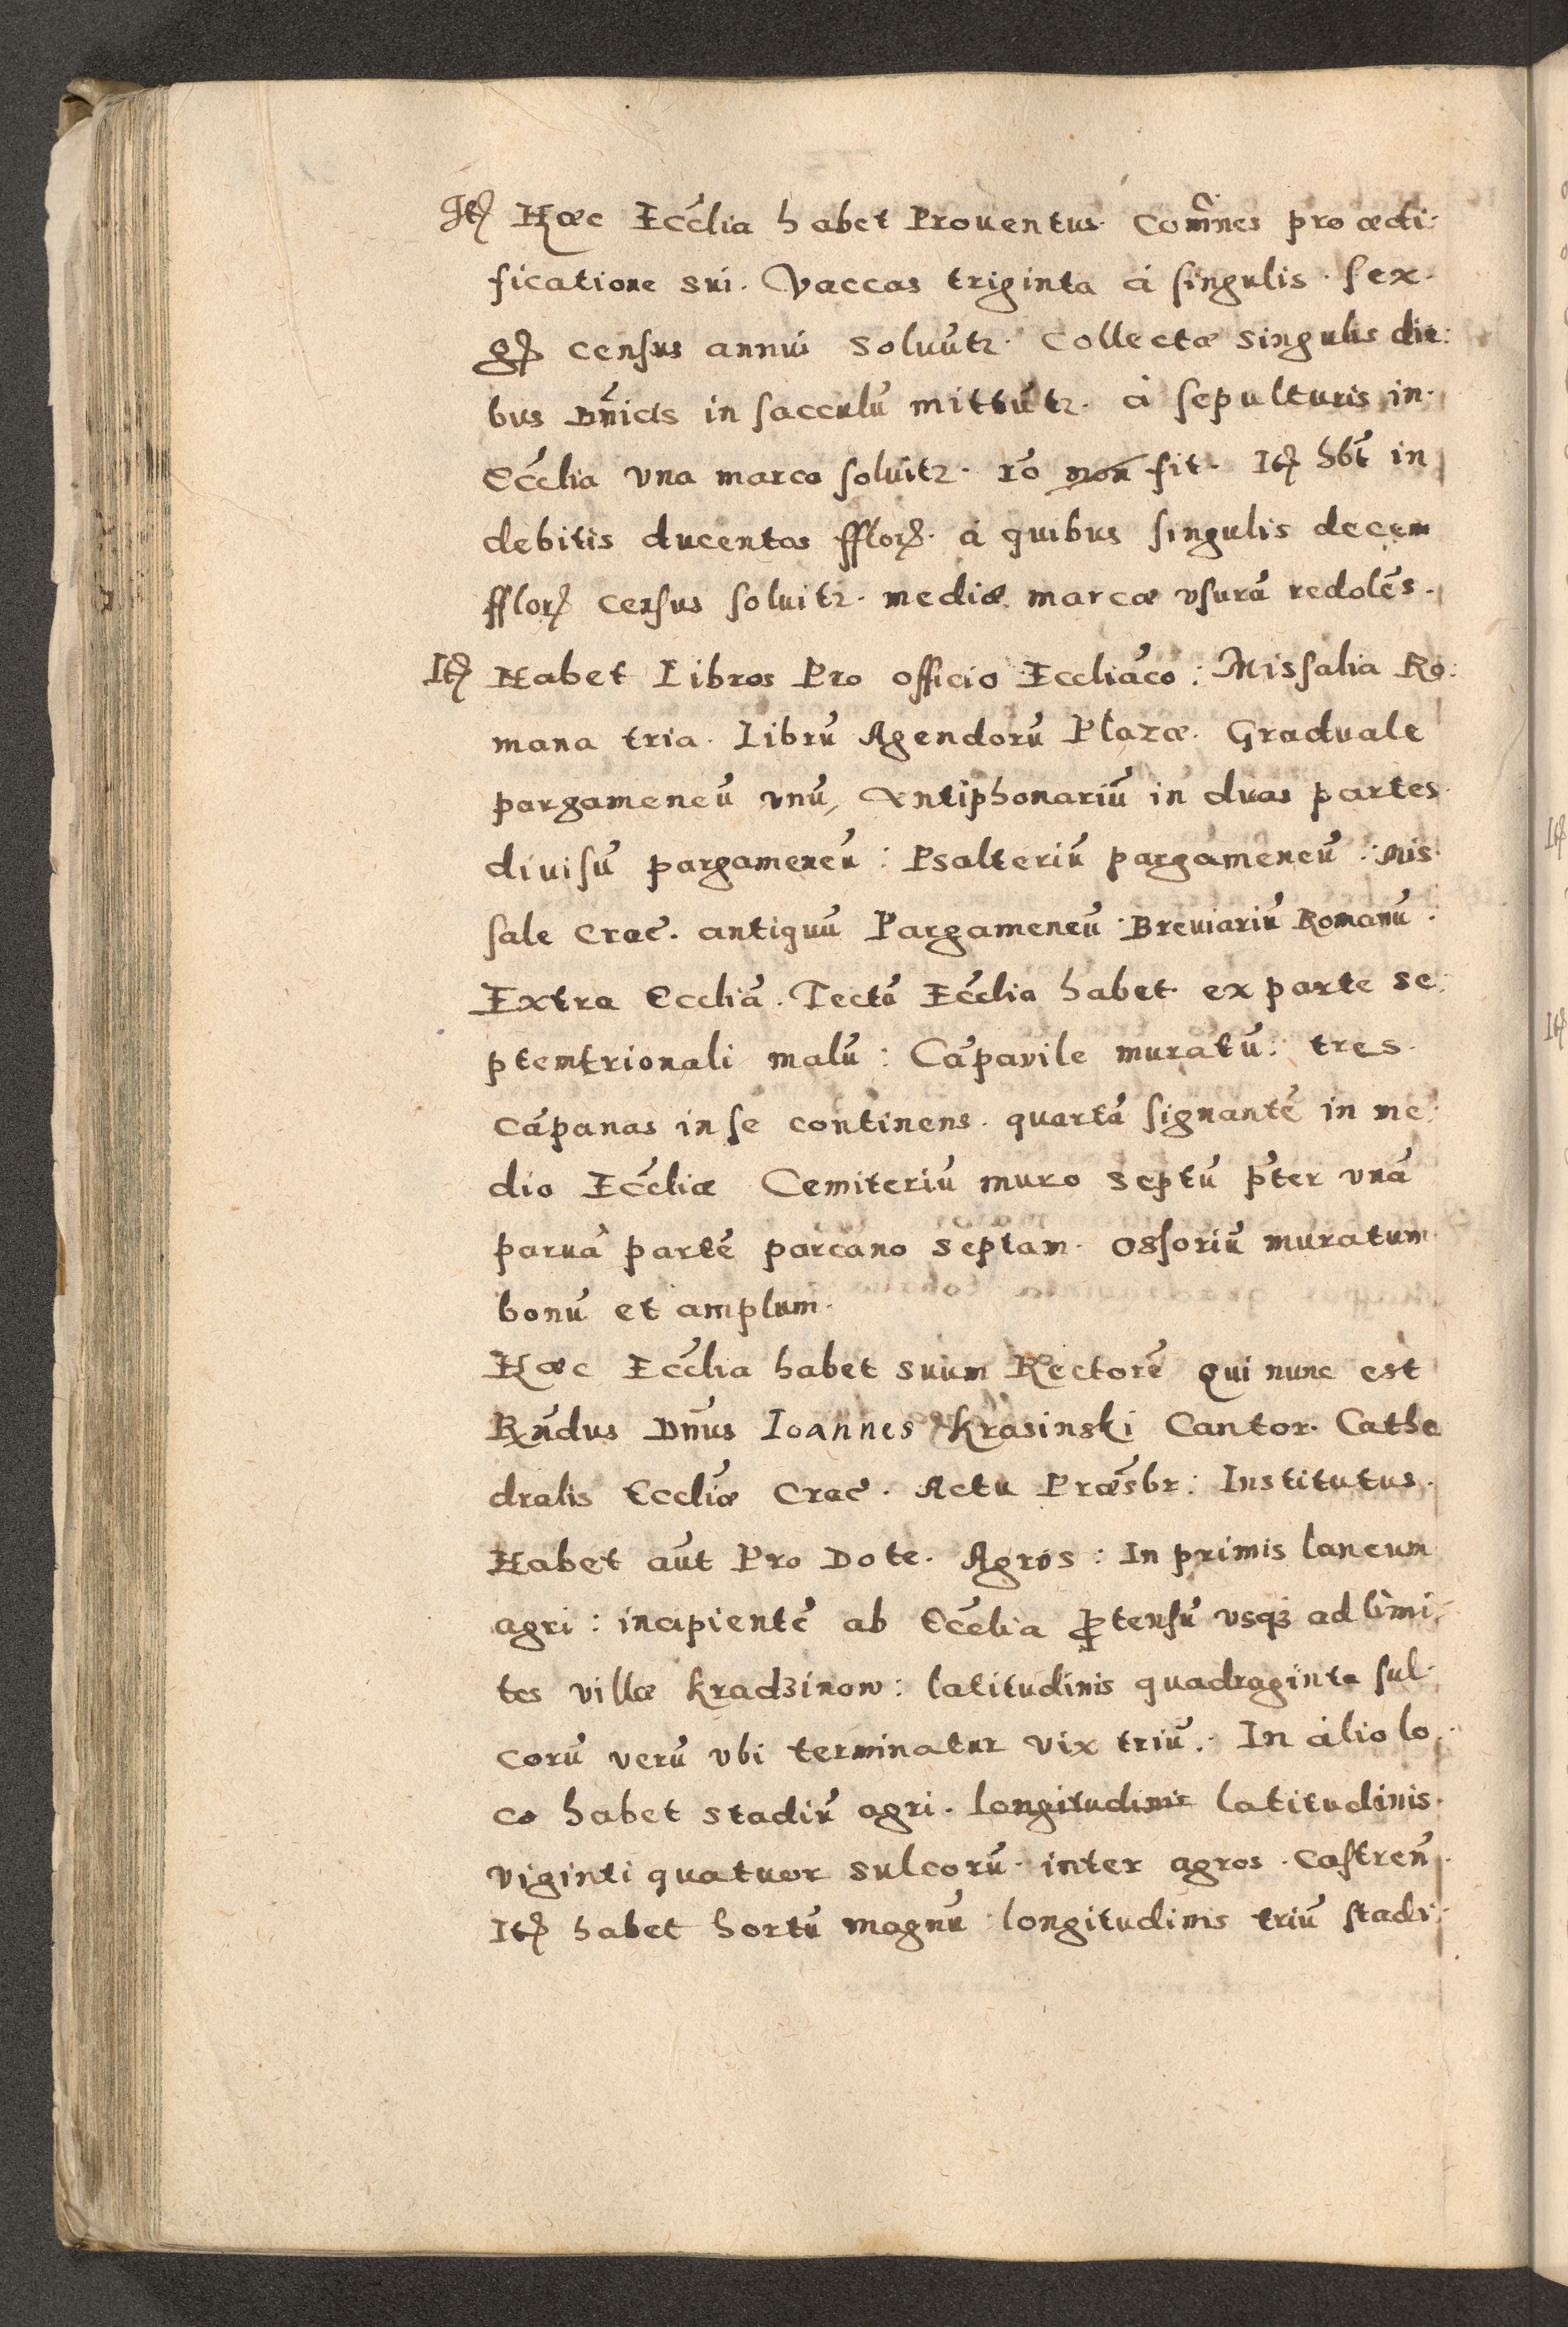 Itꝫ Hæc Eccl̃ia habet Prouentus. Com̃nes pro ædi:
ficatione sui. Vaccas triginta á singulis. sex.
gꝫ census annui soluũtr. Collectæ singulis die:
bus Dñicis in sacculũ mittũtr. á sepulturis in.
Eccl̃ia vna marca soluitr. rõ non fit. Itꝫ hẽt in
debitis ducentos fflorꝫ. á quibus singulis decem
fflorꝫ census soluitr. mediæ marcæ vsurã redolẽs.
Itꝫ Habet Libros Pro officio Eccliãco: Missalia Ro:
mana tria. Librũ Agendorũ Plaræ. Graduale
pargameneũ vnũ, Antiphonariũ in duas partes
diuisũ pargameneũ: Psalteriũ pargameneũ: Mis
sale Crac̃. antiquũ Pargameneũ. Breuiariũ Romanũ.
Extra Eccliã. Tectũ Eccl̃ia habet ex parte se:
ptemtrionali malũ: Cãpanile muratũ: tres.
cãpanas in se continens. quartã signantẽ in me:
dio Eccl̃iæ Cemiteriũ muro septũ p̃ter vnã
paruã partẽ parcano septam. Ossoriũ muratum
bonũ et amplum.
Hæc Eccl̃ia habet suum Rectorẽ qui nunc est
Rñdus Dñus Ioannes Krasinski Cantor. Cathe
dralis Eccl̃iæ Crac̃. Actu Præsbr̃: Institutus.
Habet aũt Pro Dote. Agros: In primis laneum
agri: incipientẽ ab Eccl̃ia ꝓtensũ vsqꝫ ad limi:
tes villæ Kradzinow: latitudinis quadraginta sul:
corũ verũ vbi terminatur vix triũ. In alio lo:
co habet stadiũ agri. longitudinis latitudinis.
viginti quatuor sulcorũ. inter agros. Castreñ.
Itꝫ habet hortũ magnũ longitudinis triũ stadi: